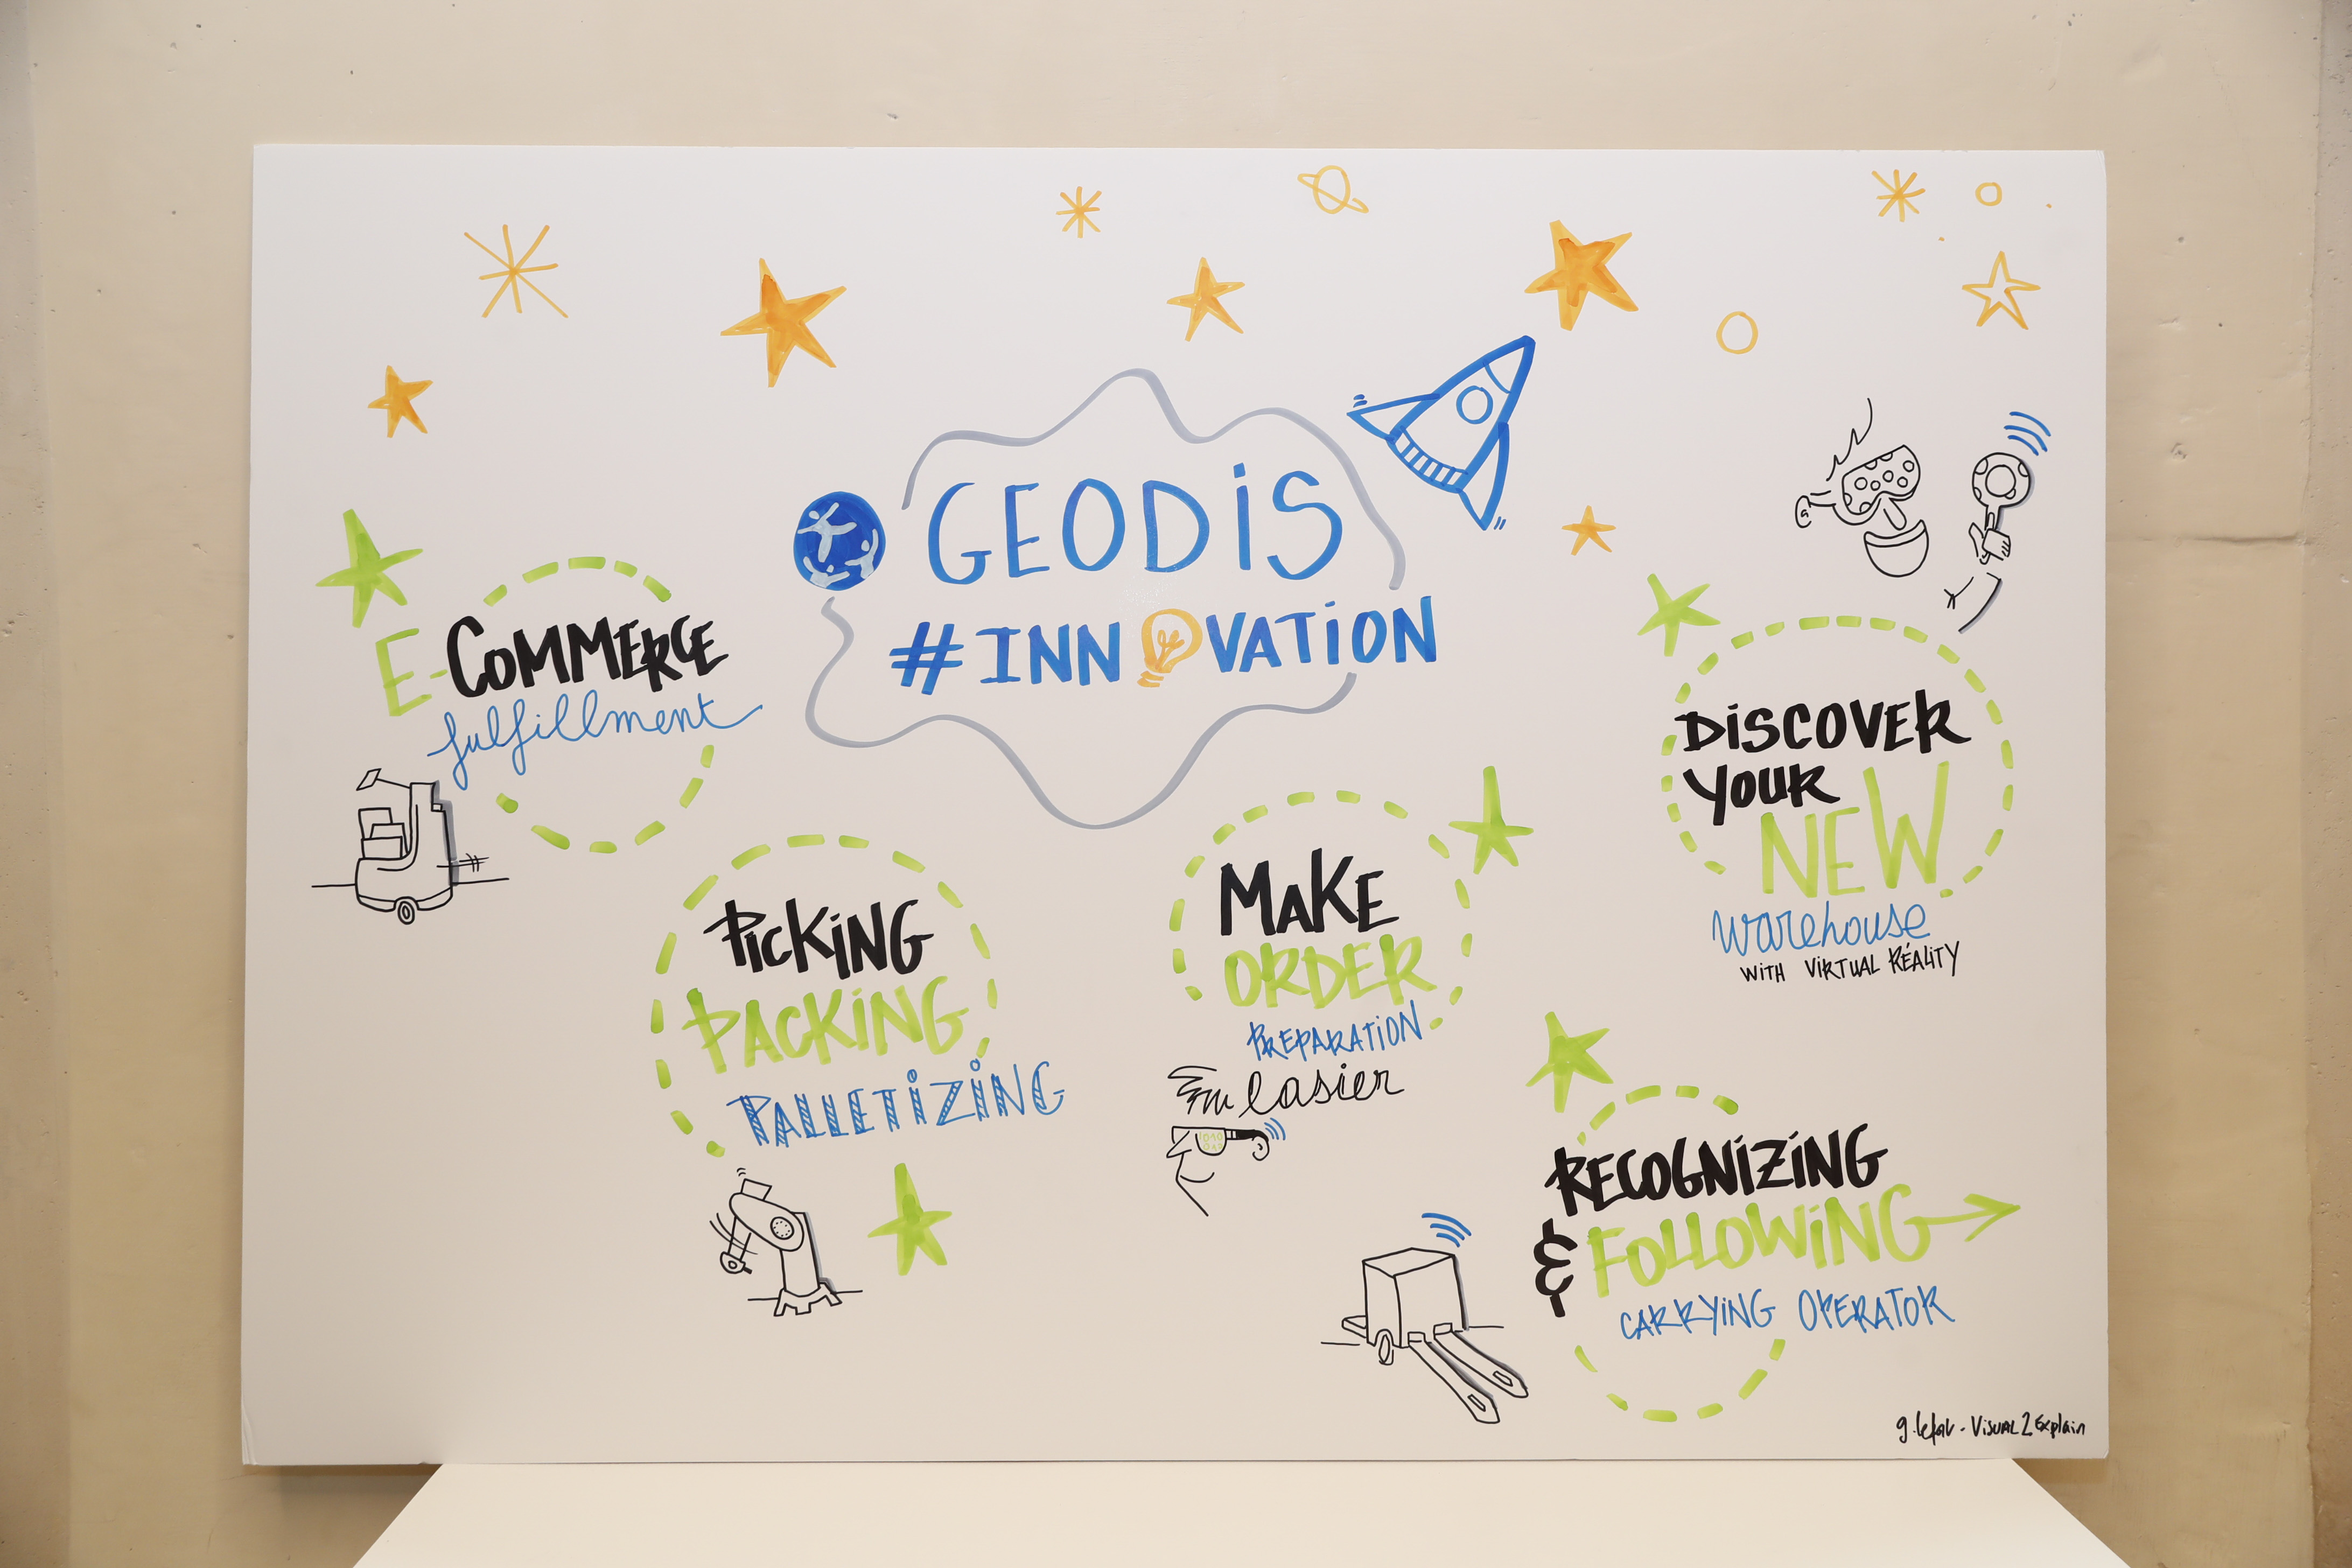 GEODiS
#INNOVATiON
E-COMMERCE
fulfillment
PiCKiNG
PACKiNG
PALLETiZiNG
MAKE
ORDER
PREPARATiON
easier
DiSCOVER
YOUR
NEW
warehouse
WiTH ViRTUAL RÉALiTY
RECOGNiZiNG
& FOLLOWiNG
CARRYiNG OPERATOR
Visual2Explain